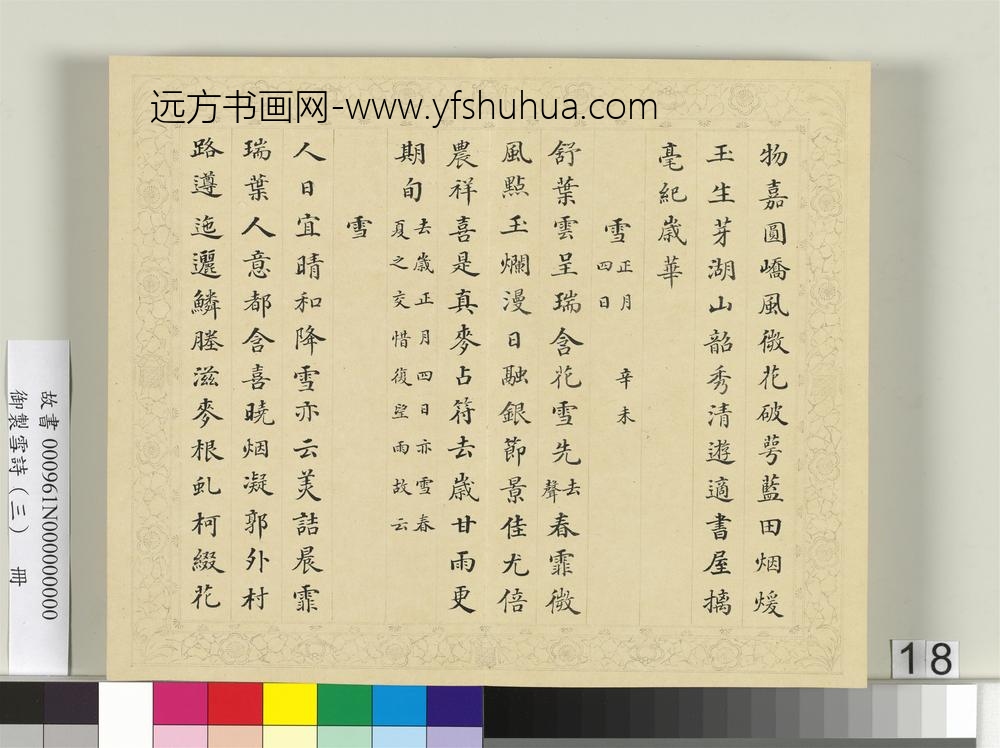 远方书画网-www.yfshuhua.com
物嘉圓嶠風微花破萼藍田烟煖
玉生芽湖山韶秀清遊適書屋摛
毫紀嵗華
雪正月四日 辛未
舒葉雲呈瑞含花雪先去聲春霏微
風點玉爛漫日融銀節景佳尤倍
農祥喜是真麥占符去嵗甘雨更
期旬去嵗正月四日亦雪春夏之交惜復望雨故云
雪
人日宜晴和降雪亦云美詰晨霏
瑞葉人意都含喜曉烟凝郭外村
路遵迤邐鱗塍滋麥根虬柯綴花
故書 000961N000000000
御製雪詩（三） 冊
18